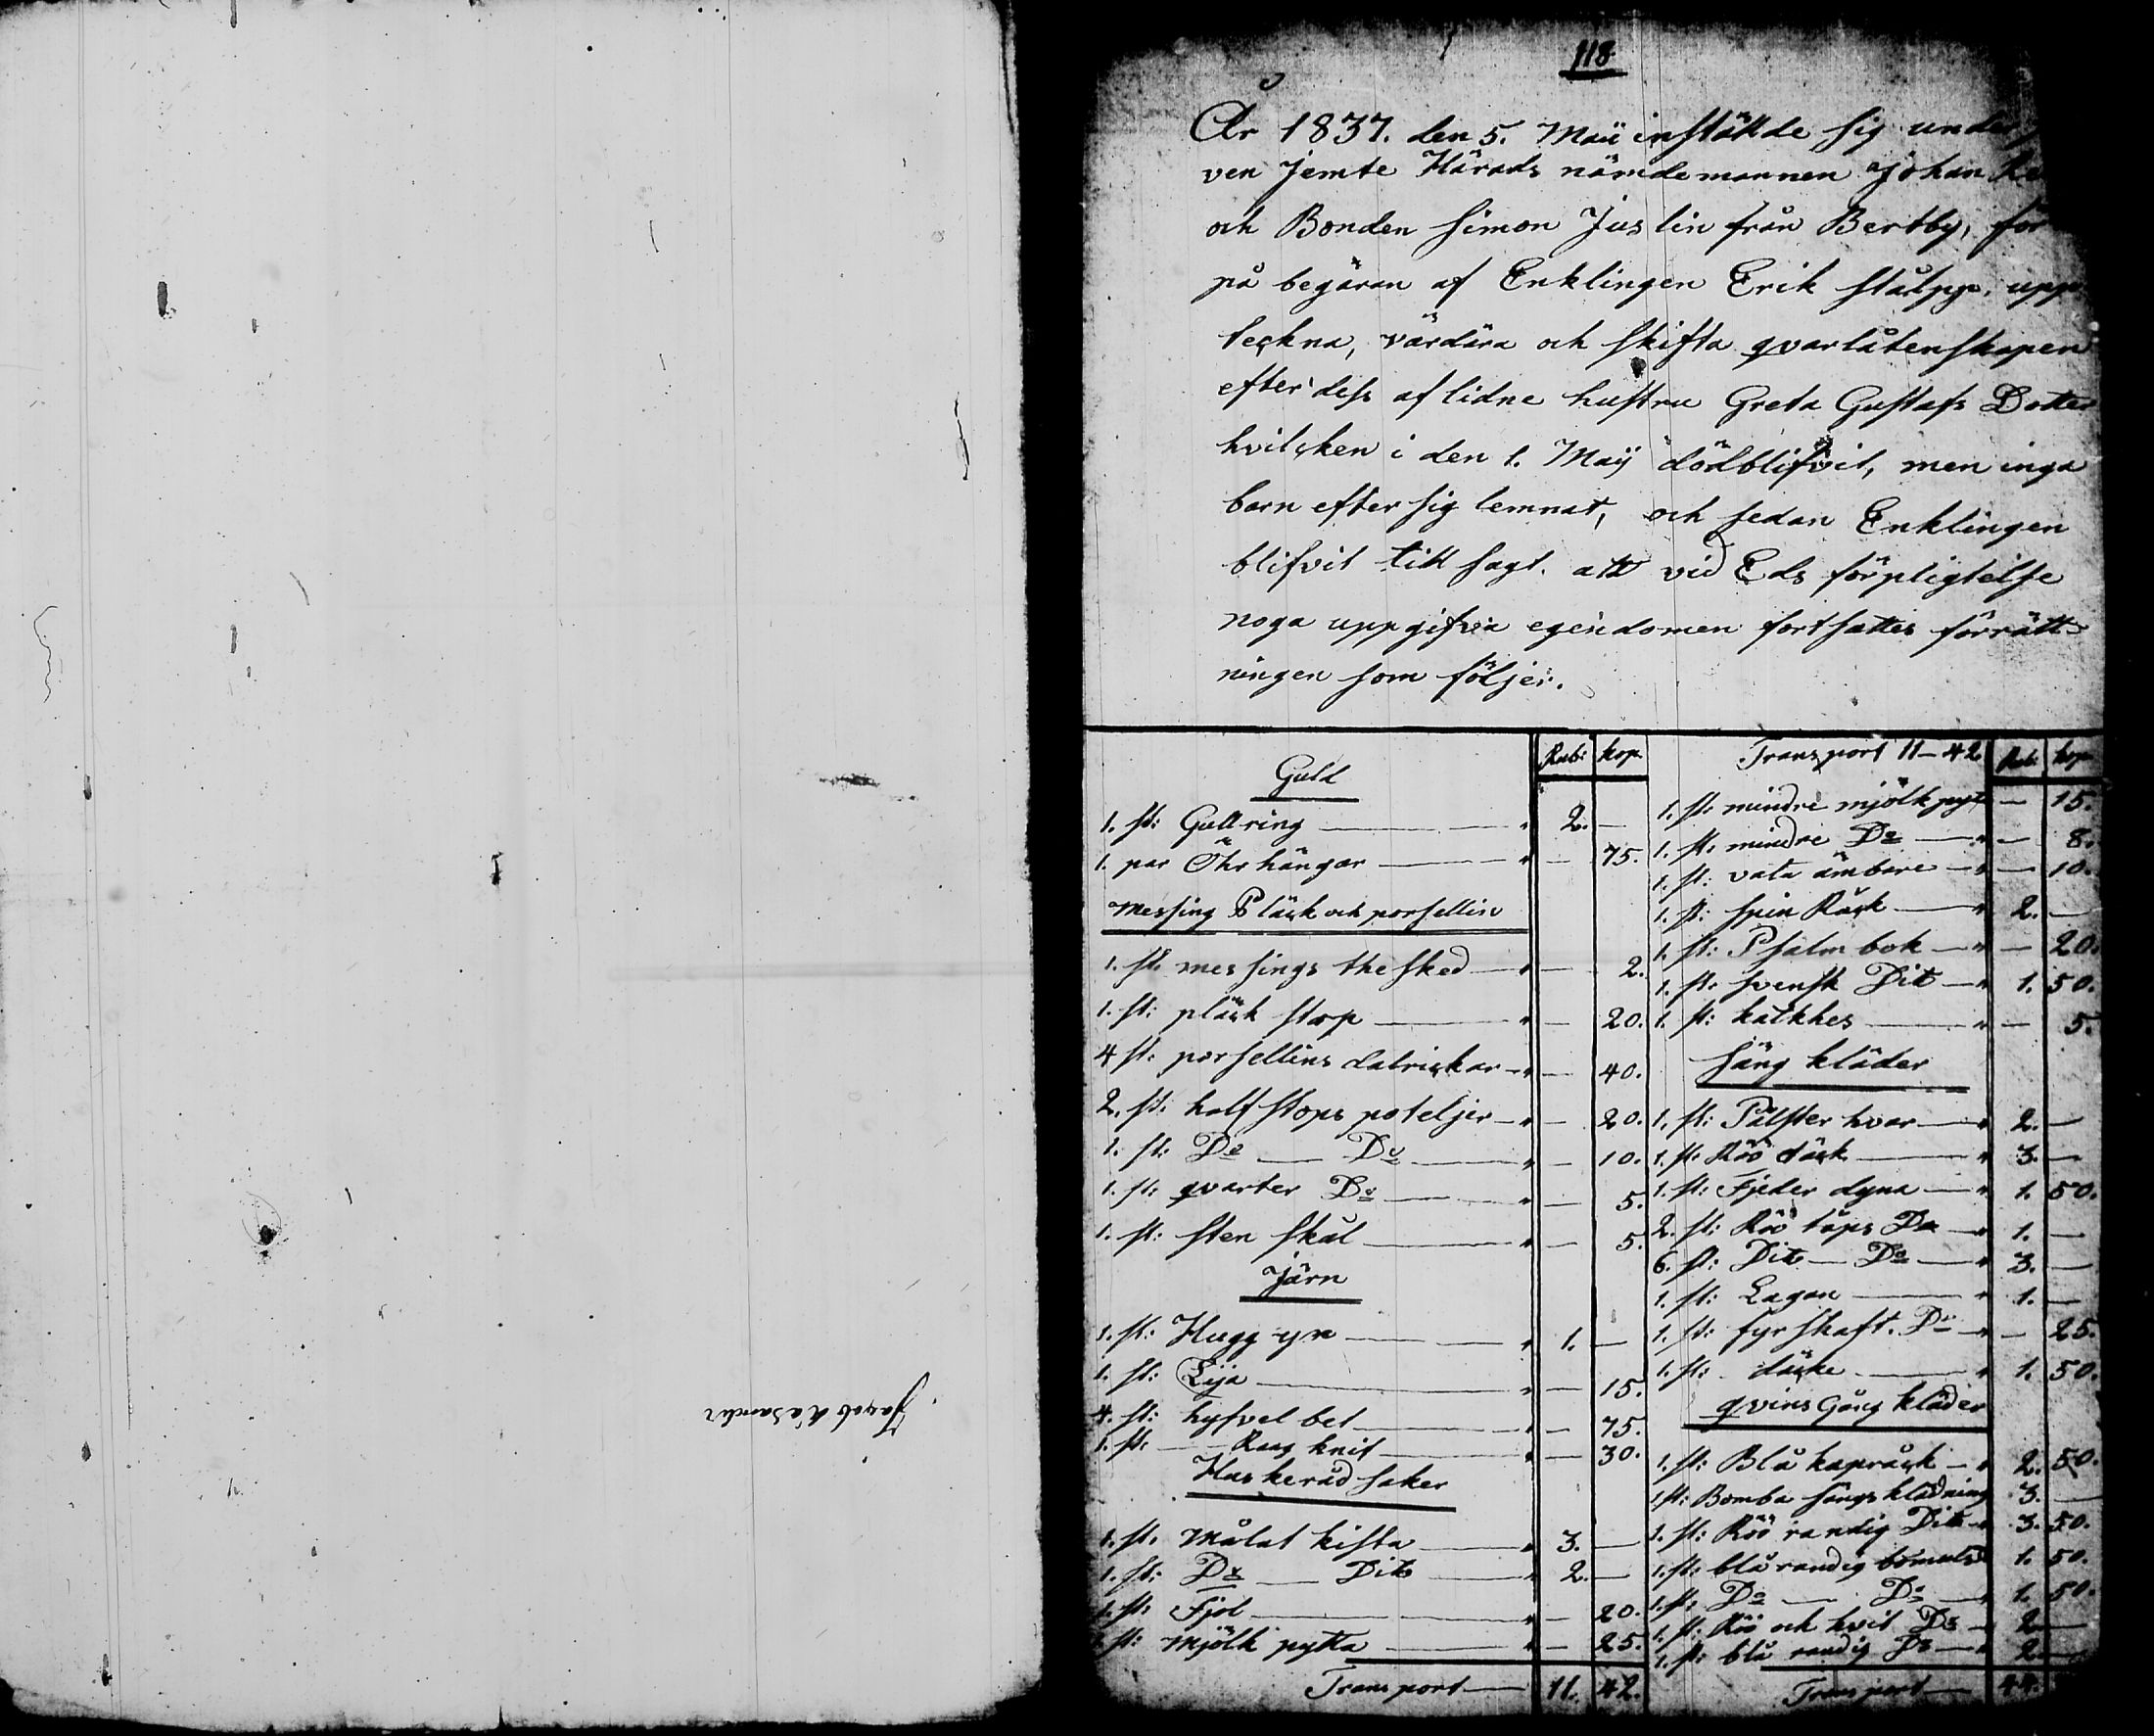 118
År 1837. den 5. Maii instälde sig under
ven jemte Härads nämdemannen Johan
och Bonden Simon Juslin från Bertby, för
på begäran af Enklingen Erik Stålpp. upp
teckna, värdära och skifta qvarlåtenskapen
efter dess aflidne hustru Greta Gustafs Dotter
hvilcken i den 1. Maij dödblifvit, men inga
barn efter sig lemnat, och sedan Enklingen
blifvit till sagt. att vid Eds förpligtelse
noga uppgifva egendomen fortsattes förrätt-
ningen som följer.
Rub: kop.
Guld
1. st: Gullring — " 2. —
1. par Öhrhängar — " — 75.
Messing Pläck och porsellin
1. st. messings thesked — " — 2.
1. st: pläck stop — " — 20.
4 st: porsellins talrickar — " — 40.
2. st: half stops poteljer — " — 20.
1. st: Do — Do — " — 10.
1. st: qvarter Do — " — 5.
1. st: sten skål — " — 5.
Järn
1. st: Hugg yx — " 1. —
1. st: Lija — " — 15.
4. st: hyfvel bet — " — 75.
1. st: — knif — " — 30.
Huskeråd saker
1. st. Målat kista — " 3. —
1. st: Do — Dito — " 2. —
1. st: Fjöl — " — 20.
st: Mjölk pytta — " — 25.
Transport — 11. 42.
Transport 11 — 42 Rub. kop.
1. st: mindre mjölk pyt — 15.
1. st: mindre Do — " — 8.
1. st: vata ämbare — " — 10.
1. st: spin Råck — " 2. —
1. st: Psalm bok — " — 20.
1. st: svensk Dito — " 1. 50.
1. st: katkhes — " — 5.
Säng kläder
1. st: Pålster hvar — " 2. —
1. st: Röö täck — " 3. —
1. st: Fjeder dyna — " 1. 50.
2. st: Röö Do — " 1. —
6. st: Dito — Do — " 3. —
1. st: Lagan — " 1. —
1. st: fyrskaft. Do — " — 25.
1. st: täcke — " 1. 50.
qvins Gång kläder
1. st: Blå kapråck — " 2. 50.
1. st: Bomba sängs klädning 3. —
1. st: Röö randig Dito — " 3. 50.
1. st: blå randig bomuls 1. 50.
1. st: Do — Do — " 1. 50.
1. st: Röö och hvit Do — 2 —
1. st: blå randig Do — " 2 —
Transport — 44.
Jacob